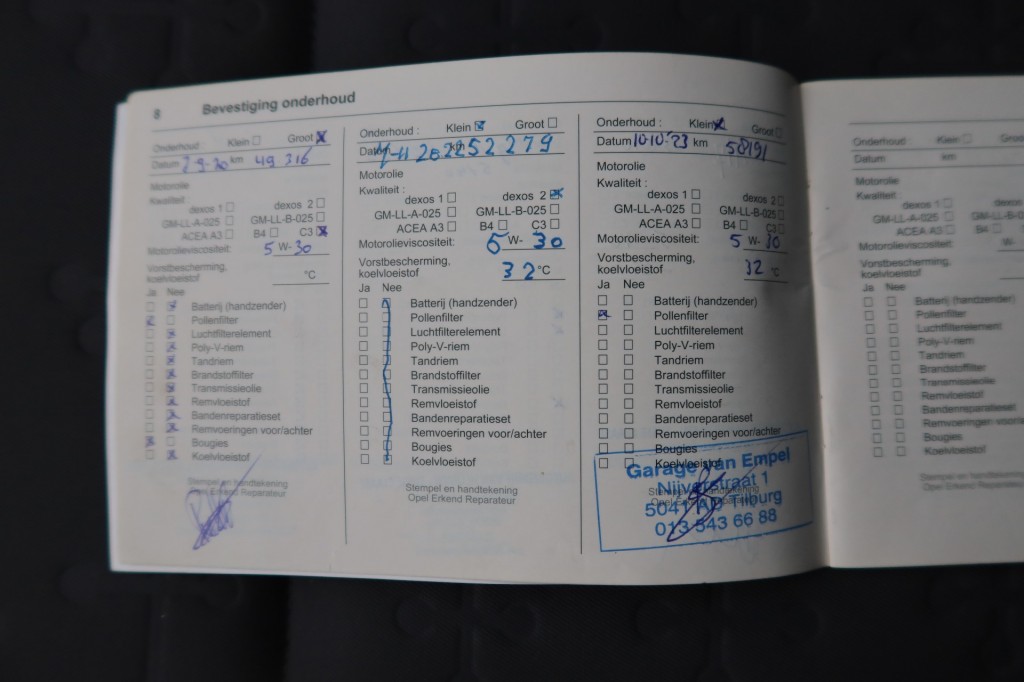 8 Bevestiging onderhoud
Onderhoud: Klein Groot
Datum 2-9-20 km 49 316
Motorolie
Kwaliteit:
dexos 1 dexos 2
GM-LL-A-025 GM-LL-B-025
ACEA A3 B4 C3
Motorolieviscositeit: 5 W- 30
Vorstbescherming,
koelvloeistof °C
Ja Nee
Batterij (handzender)
Pollenfilter
Luchtfilterelement
Poly-V-riem
Tandriem
Brandstoffilter
Transmissieolie
Remvloeistof
Bandenreparatieset
Remvoeringen voor/achter
Bougies
Koelvloeistof
Stempel en handtekening
Opel Erkend Reparateur
Onderhoud : Klein Groot
Datum km 52 279
Motorolie
Kwaliteit :
dexos 1 dexos 2
GM-LL-A-025 GM-LL-B-025
ACEA A3 B4 C3
Motorolieviscositeit: 5 W- 30
Vorstbescherming,
koelvloeistof 32 °C
Ja Nee
Batterij (handzender)
Pollenfilter
Luchtfilterelement
Poly-V-riem
Tandriem
Brandstoffilter
Transmissieolie
Remvloeistof
Bandenreparatieset
Remvoeringen voor/achter
Bougies
Koelvloeistof
Stempel en handtekening
Opel Erkend Reparateur
Onderhoud : Klein Groot
Datum 10-10-'23 km 58191
Motorolie
Kwaliteit :
dexos 1 dexos 2
GM-LL-A-025 GM-LL-B-025
ACEA A3 B4 C3
Motorolieviscositeit: 5 W- 30
Vorstbescherming,
koelvloeistof 32 °C
Ja Nee
Batterij (handzender)
Pollenfilter
Luchtfilterelement
Poly-V-riem
Tandriem
Brandstoffilter
Transmissieolie
Remvloeistof
Bandenreparatieset
Remvoeringen voor/achter
Bougies
Koelvloeistof
Stempel en handtekening
Opel Erkend Reparateur
Garage van Empel
Nijverstraat 1
5041 Tilburg
013 543 66 88
Onderhoud : Klein
Datum km
Motorolie
Kwaliteit :
dexos 1
GM-LL-A-025 GM-LL-B
ACEA A3 B4
Motorolieviscositeit: W-
Vorstbescherming,
koelvloeistof
Ja Nee
Batterij (handzender)
Pollenfilter
Luchtfilterelement
Poly-V-riem
Tandriem
Brandstoffilter
Transmissieolie
Remvloeistof
Bandenreparatieset
Remvoeringen voor/achter
Bougies
Koelvloeistof
Stempel en handteken
Opel Erkend Reparat